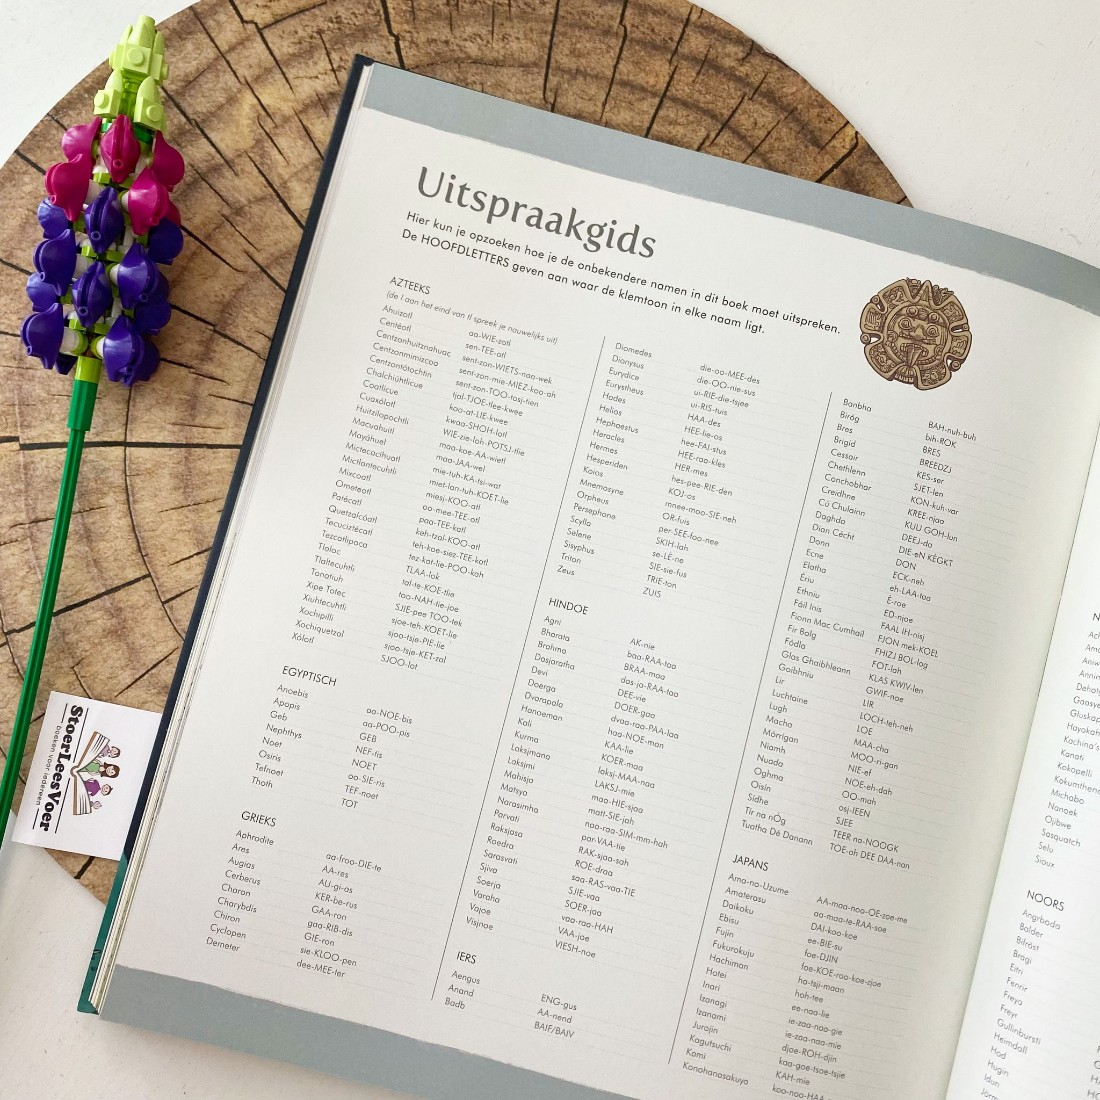 Uitspraakgids
Hier kun je opzoeken hoe je de onbekendere namen in dit boek moet uitspreken.
De HOOFDLETTERS geven aan waar de klemtoon in elke naam ligt.
AZTEEKS
(de l aan het eind van tl spreek je nauwelijks uit)
Ahuizotl aa-WIE-zotl
Centéotl sen-TEE-otl
Centzonhuitznahuac sent-zon-WIETS-naa-wek
Centzonmimizcoa sent-zon-mie-MIEZ-koo-ah
Centzontótochtin sent-zon-TOO-tosj-tien
Chalchiúhtlicue tjal-TJOE-tlee-kwee
Coatlicue koo-at-LIE-kwee
Cuaxólotl kwaa-SHOH-lotl
Huitzilopochtli WIE-zie-loh-POTSJ-tlie
Macuahuitl maa-koe-AA-wietl
Mayáhuel maa-JAA-wel
Mictecacihuatl mie-tuh-KA-tsi-wat
Mictlantecuhtli miet-lan-tuh-KOET-lie
Mixcoatl miesj-KOO-atl
Ometeotl oo-mee-TEE-otl
Patécatl paa-TEE-katl
Quetzalcóatl keh-tzal-KOO-atl
Tecuciztécatl teh-koe-siez-TEE-katl
Tezcatlipoca tez-kat-lie-POO-kah
Tlaloc TLAA-lok
Tlaltecuhtli tal-te-KOE-tlie
Tonatiuh too-NAH-tie-joe
Xipe Totec SJIE-pee TOO-tek
Xiuhtecuhtli sjoe-teh-KOET-lie
Xochipilli sjoo-tsje-PIE-lie
Xochiquetzal sjoo-tsje-KET-zal
Xólotl SJOO-lot
EGYPTISCH
Anoebis aa-NOE-bis
Apopis aa-POO-pis
Geb GEB
Nephthys NEF-tis
Noet NOET
Osiris oo-SIE-ris
Tefnoet TEF-noet
Thoth TOT
GRIEKS
Aphrodite aa-froo-DIE-te
Ares AA-res
Augias AU-gi-as
Cerberus KER-be-rus
Charon GAA-ron
Charybdis gaa-RIB-dis
Chiron GIE-ron
Cyclopen sie-KLOO-pen
Demeter dee-MEE-ter
Diomedes die-oo-MEE-des
Dionysus die-OO-nie-sus
Eurydice ui-RIE-die-tsjee
Eurystheus ui-RIS-tuis
Hades HAA-des
Helios HEE-lie-os
Hephaestus hee-FAI-stus
Heracles HEE-raa-kles
Hermes HER-mes
Hesperiden hes-pee-RIE-den
Koios KOJ-os
Mnemosyne mnee-moo-SIE-neh
Orpheus OR-fuis
Persephone per-SEE-foo-nee
Scylla SKIH-lah
Selene se-LÈ-ne
Sisyphus SIE-sie-fus
Triton TRIE-ton
Zeus ZUIS
HINDOE
Agni AK-nie
Bharata baa-RAA-taa
Brahma BRAA-maa
Dasjaratha das-ja-RAA-taa
Devi DEE-vie
Doerga DOER-gaa
Dvarapala dvaa-raa-PAA-laa
Hanoeman haa-NOE-man
Kali KAA-lie
Kurma KOER-maa
Laksjmana laksj-MAA-naa
Laksjmi LAKSJ-mie
Mahisja maa-HIE-sjaa
Matsya matt-SIE-jah
Narasimha naa-raa-SIMM-mm-hah
Parvati par-VAA-tie
Raksjasa RAK-sjaa-sah
Roedra ROE-draa
Sarasvati saa-RAS-vaa-TIE
Sjiva SJIE-vaa
Soerja SOER-jaa
Varaha vaa-raa-HAH
Vajoe VAA-joe
Visjnoe VIESH-noe
IERS
Aengus ENG-gus
Anand AA-nend
Badb BAIF/BAIV
Banbha BAH-nuh-buh
Biróg bih-ROK
Bres BRES
Brigid BREEDZJ
Cessair KES-ser
Chethlenn SJET-len
Conchobhar KON-kuh-var
Creidhne KREE-njaa
Cú Chulainn KUU GOH-lun
Daghda DEEJ-da
Dian Cécht DIE-eN KÈGKT
Donn DON
Ecne ECK-neh
Elatha eh-LAA-taa
Ériu É-roe
Ethniu ED-njoe
Fáil Inis FAAL IH-nisj
Fionn Mac Cumhail FJON mek-KOEL
Fir Bolg FHIZJ BOL-log
Fódla FOT-lah
Glas Ghaibhleann KLAS KWIV-len
Goibhniu GWIF-noe
Lir LIR
Luchtaine LOCH-teh-neh
Lugh LOE
Macha MAA-cha
Mórrigan MOO-ri-gan
Niamh NIE-ef
Nuada NOE-eh-dah
Oghma OO-mah
Oisín osj-IEEN
Sídhe SJEE
Tír na nÓg TEER na-NOOGK
Tuatha Dé Danann TOE-oh DEE DAA-nan
JAPANS
Ama-no-Uzume AA-maa-noo-OE-zoe-me
Amaterasu aa-maa-te-RAA-soe
Daikoku DAJ-koo-koe
Ebisu ee-BIE-su
Fujin foe-DJIN
Fukurokuju foe-KOE-roo-koe-djoe
Hachiman ha-tsji-maan
Hotei hoh-tee
Inari ee-naa-lie
Izanagi ie-zaa-naa-gie
Izanami ie-zaa-naa-mie
Jurojin djoe-ROH-djin
Kagutsuchi kaa-goe-tsoe-tsjie
Kami KAH-mie
Konohanasakuya
NOORS
Angrboda
Balder
Bifröst
Bragi
Eitri
Fenrir
Freya
Freyr
Gullinbursti
Heimdall
Hod
Hugin
Idun
Kanati
Kokopelli
Michabo
Nanoek
Ojibwe
Sasquatch
Selu
Sioux
StoerLeesVoer
boeken voor iedereen